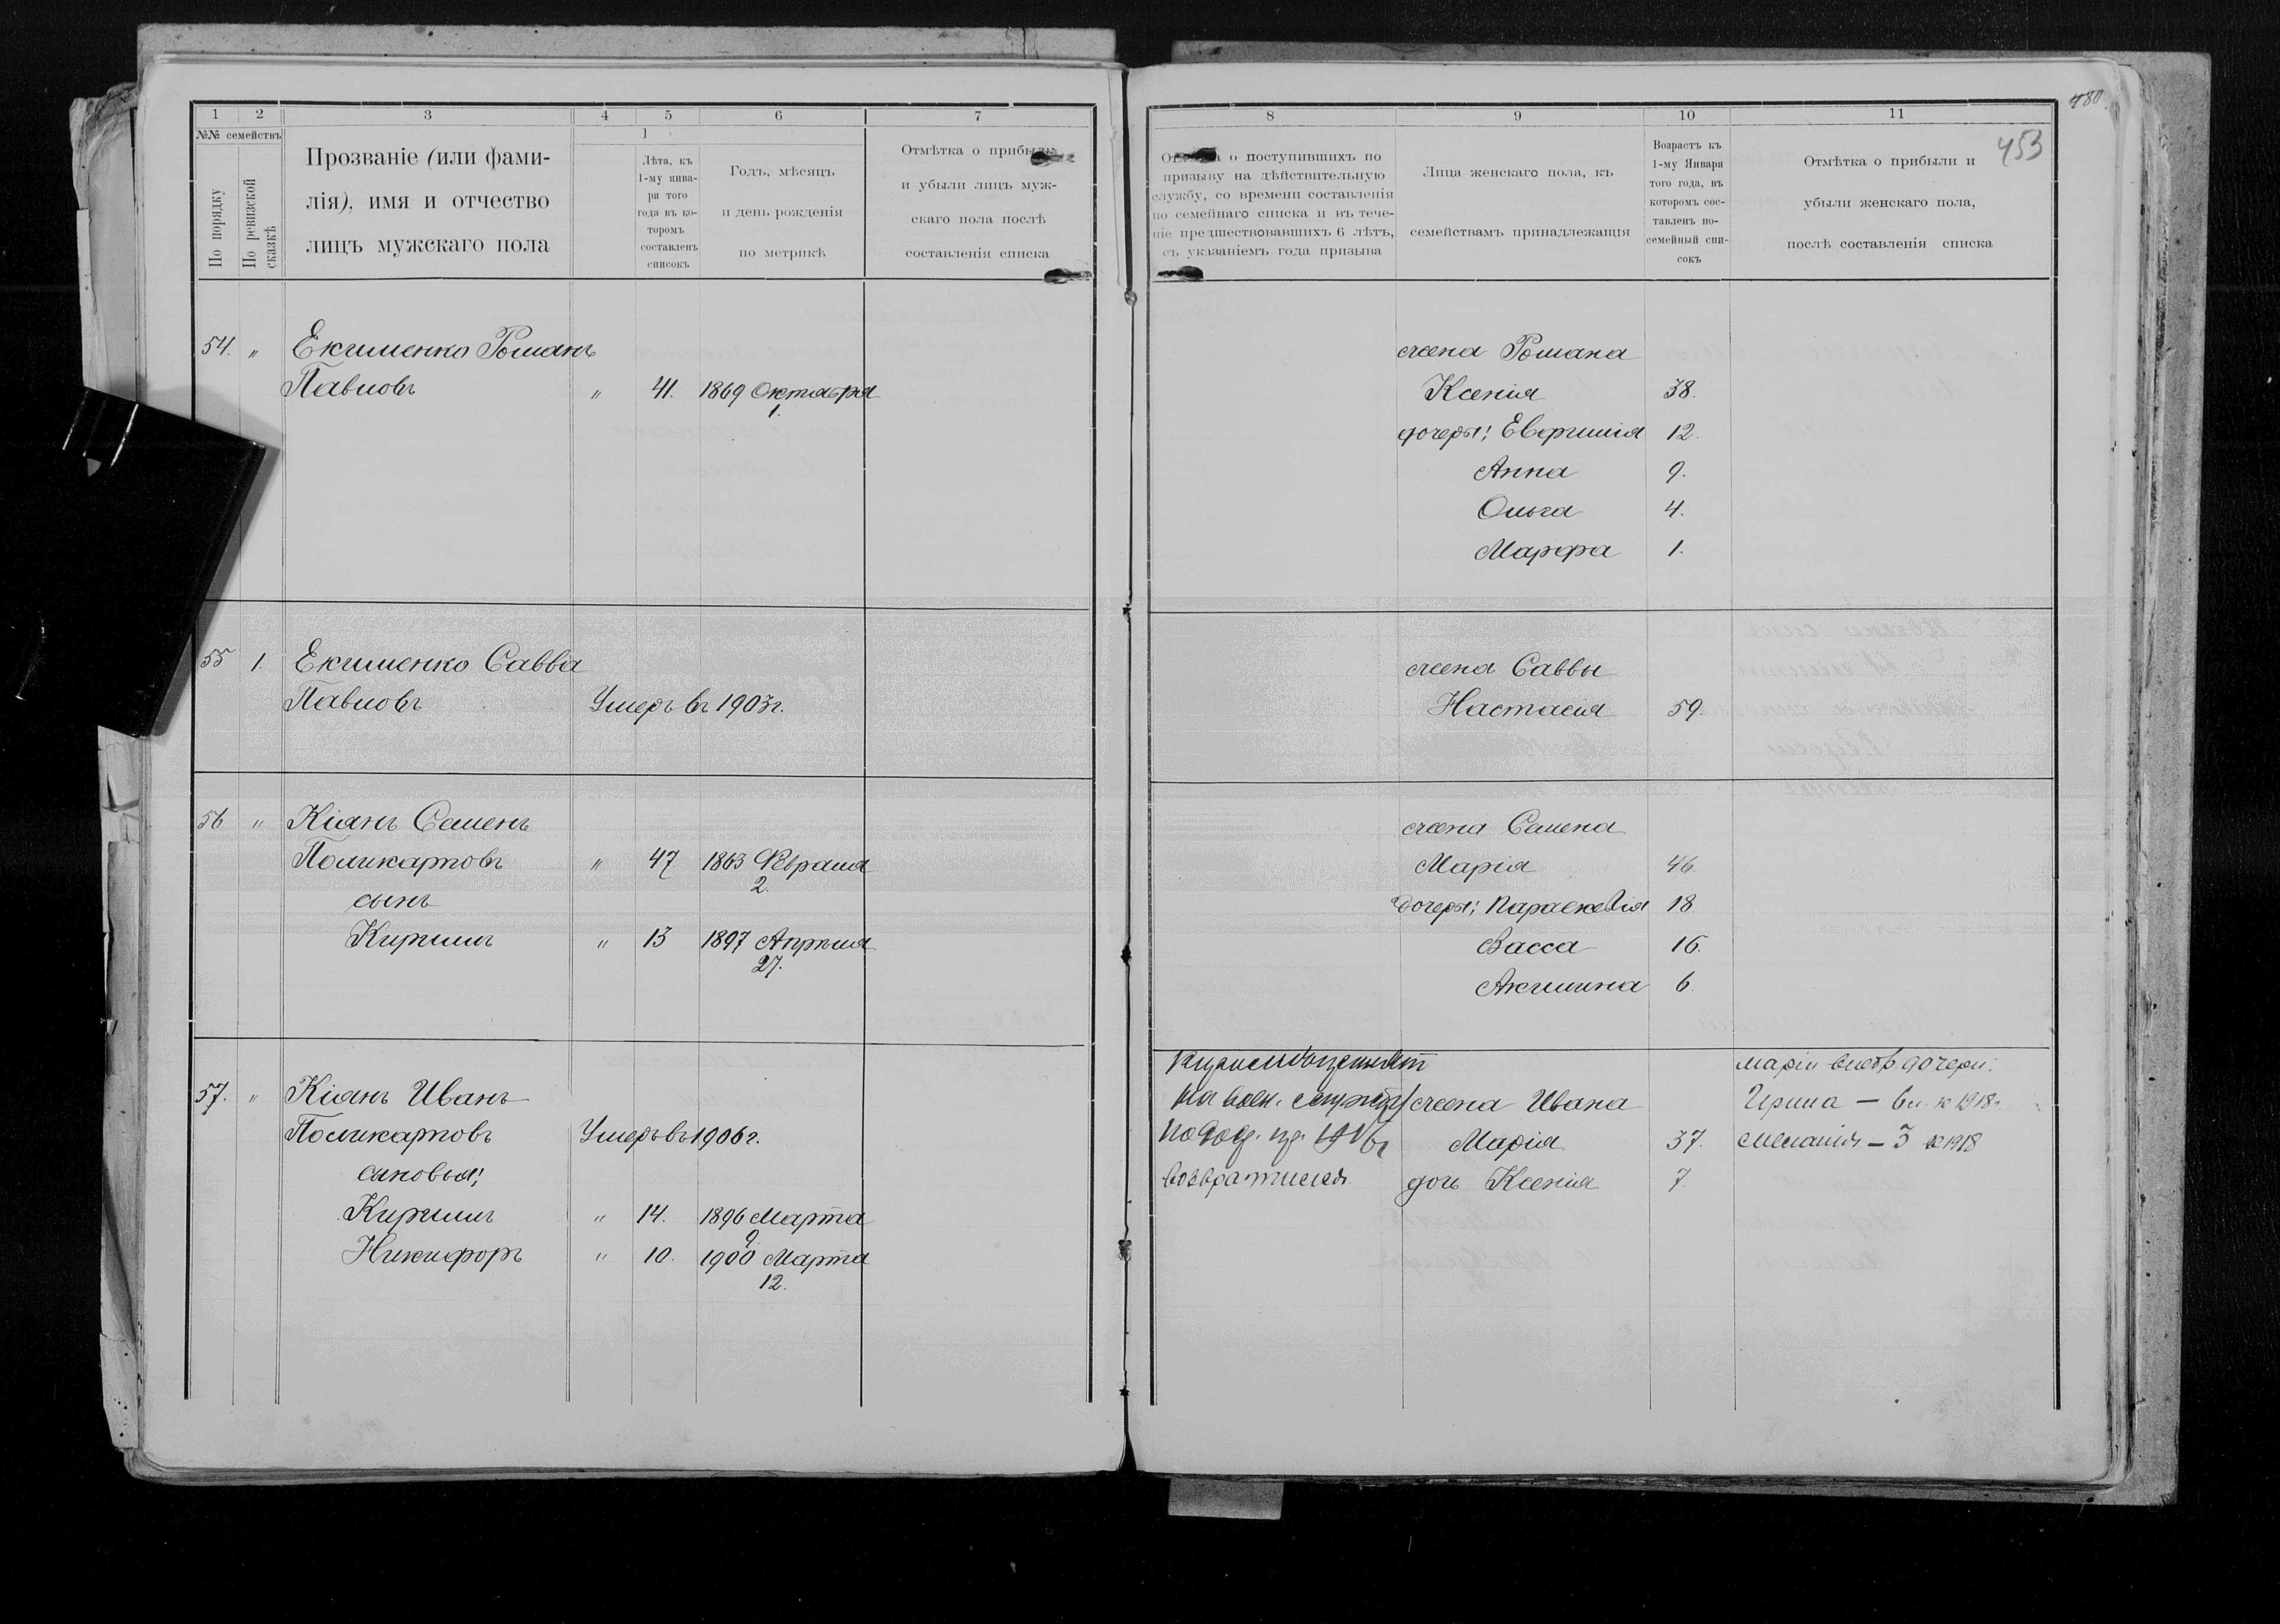 1 2 3 4 5 6 7
№№ семействъ
По порядку
По ревизской сказкѣ
Прозваніе (или фами-
лія), имя и отчество
лицъ мужскаго пола
1
Лѣта, къ
1-му янва-
ря того
года въ ко-
торомъ
составленъ
списокъ
Годъ, мѣсяцъ
и день рожденія
по метрикѣ
Отмѣтка о прибыли
и убыли лицъ муж-
скаго пола послѣ
составленія списка
54. " Екименко Романъ
Павловъ " 41. 1869 Октября
1.
55 1. Екименко Савва
Павловъ Умеръ въ 1903 г.
56 " Кіянъ Семенъ
Поликарповъ " 47 1863 Февраля
2.
сынъ
Кириллъ " 13 1897 Апрѣля
27.
57. " Кіянъ Иванъ
Поликарповъ Умеръ въ 1906 г.
сыновья;
Кириллъ " 14. 1896 Марта
9
Никифоръ " 10. 1900 Марта
12.
480.
453
8 9 10 11
Отмѣтка о поступившихъ по
призыву на дѣйствительную
службу, со времени составленія
по семейнаго списка и въ тече-
ніе предшествовавшихъ 6 лѣтъ,
съ указаніемъ года призыва
Лица женскаго пола, къ
семействамъ принадлежащія
Возрастъ къ
1-му Января
того года, въ
которомъ сос-
тавленъ по-
семейный спи-
сокъ
Отмѣтка о прибыли и
убыли женскаго пола,
послѣ составленія списка
жена Романа
Ксенія 38.
дочеры; Евфимія 12.
Анна 9.
Ольга 4.
Марфа 1.
жена Саввы
Настасія 59.
жена Семена
Марія 46.
дочеры; Параскевія 18.
Васса 16.
Акилина 6.
Маріи внебр. дочери:
на воен. службу жена Ивана Ирина — 6 л. к 1918 г.
Марія 37. Меланія — 3 к 1918
возвратился дочь Ксенія 7.